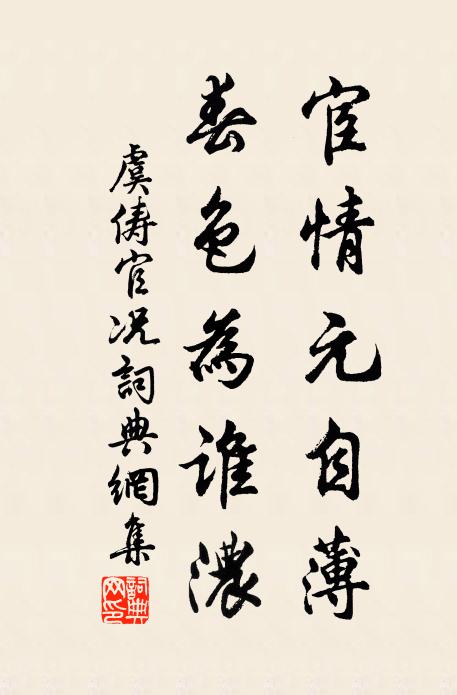 宦情元自薄
春色為誰濃
虞儔官况詞典網集
詞典网印